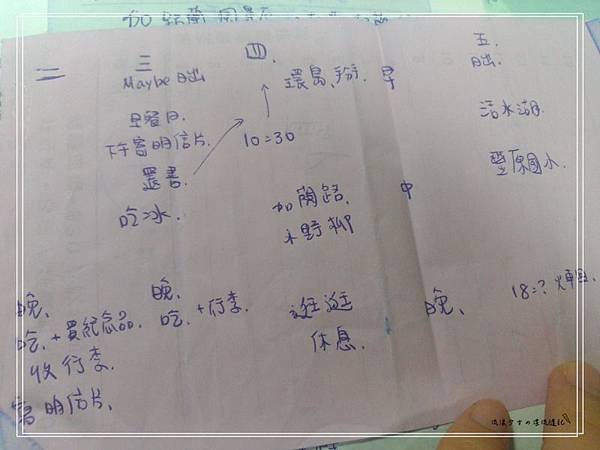 加路蘭
二
三
Maybe 日出
四.
環島、
早
五.
日出.
下午寫明信片.
還書.
吃冰.
10:30
活水湖.
豐源國小.
加蘭路.
小野柳
中
晚、
吃、+買紀念品.
收行李.
寫明信片、
晚、
吃、+行李.
逛逛
休息.
晚、
18=?